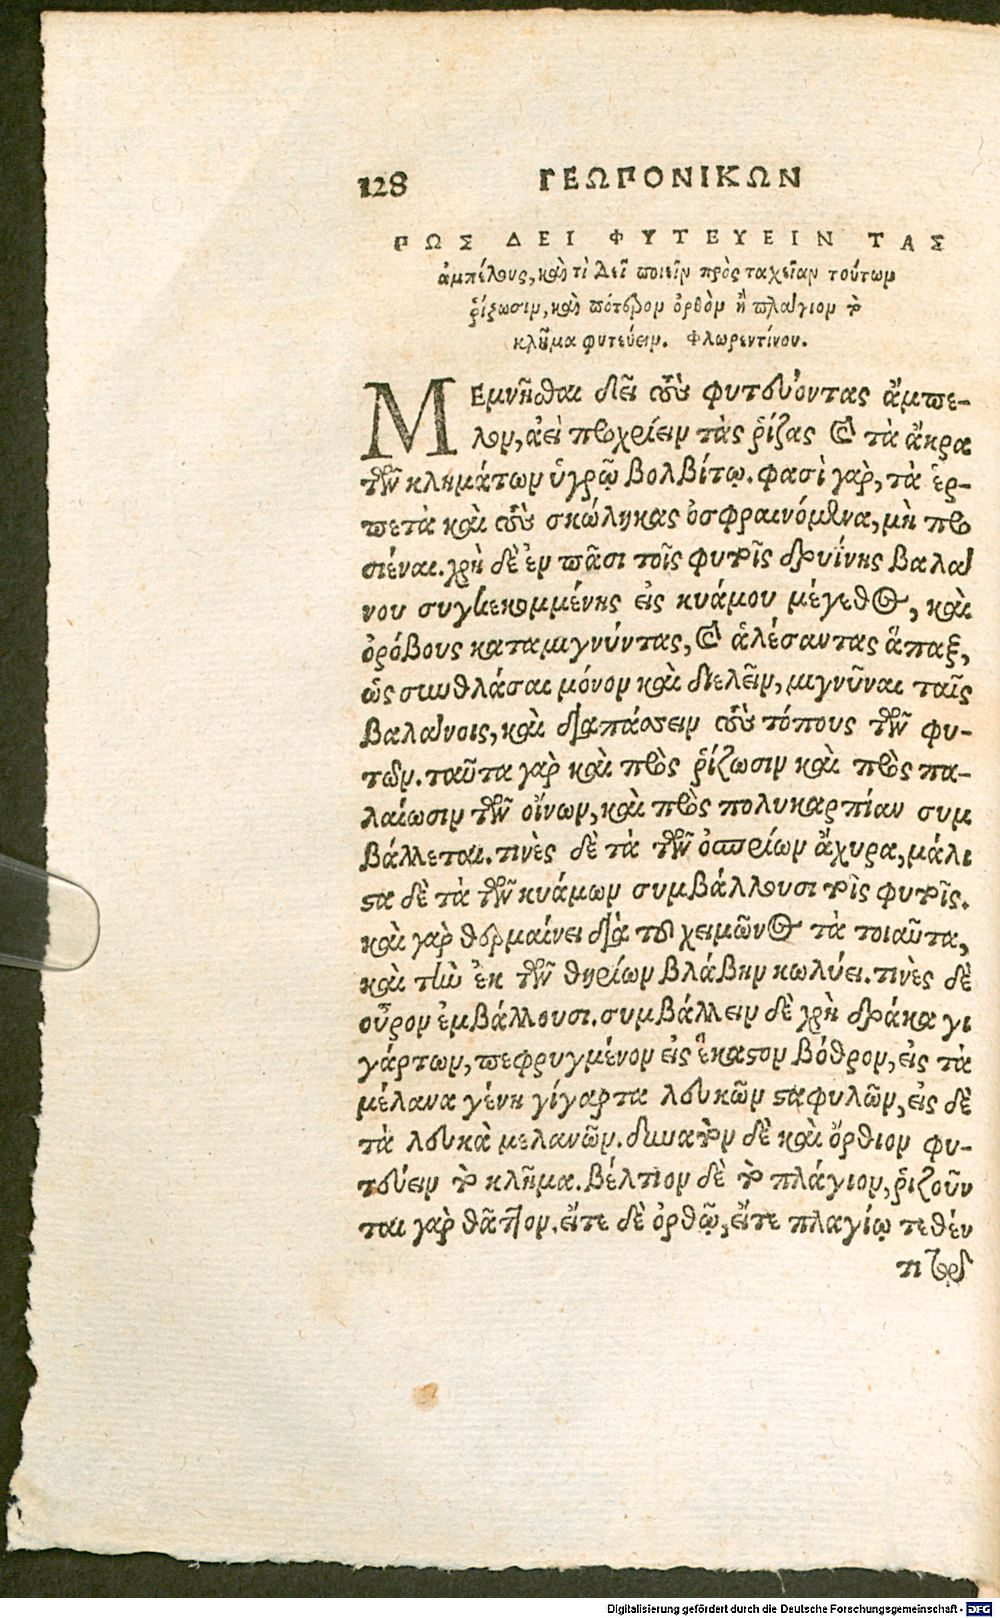 128 ΓΕΩΠΟΝΙΚΩΝ
ΠΩΣ ΔΕΙ ΦΥΤΕΥΕΙΝ ΤΑΣ
ἀμπέλους, καὶ τὶ δεῖ ποιεῖν πρὸς ταχεῖαν τούτων
ῥίζωσιν, καὶ πότερον ὀρθὸν ἢ πλάγιον τὸ
κλῆμα φυτεύειν. Φλωρεντίνου.
ΜΕμνῆσθαι δεῖ τοὺς φυτεύοντας ἄμπε-
λον, ἀεὶ προχρίειν τὰς ῥίζας καὶ τὰ ἄκρα
τῶν κλημάτων ὑγρῷ βολβίτῳ. φασὶ γὰρ, τὰ ἑρ-
πετὰ καὶ τοὺς σκώληκας ὀσφραινόμενα, μὴ προ
σιέναι. χρὴ δὲ ἐν πᾶσι τοῖς φυτοῖς δρυΐνης βαλά
νου συγκεκομμένης εἰς κυάμου μέγεθος, καὶ
ὀρόβους καταμιγνύντας, καὶ ἀλέσαντας ἅπαξ,
ὡς συνθλάσαι μόνον καὶ διελεῖν, μιγνῦναι ταῖς
βαλάνοις, καὶ διαπάσσειν τοὺς τόπους τῶν φυ-
τῶν. ταῦτα γὰρ καὶ πρὸς ῥίζωσιν καὶ πρὸς πα-
λαίωσιν τῶν οἴνων, καὶ πρὸς πολυκαρπίαν συμ
βάλλεται. τινὲς δὲ τὰ τῶν ὀσπρίων ἄχυρα, μάλι
στα δὲ τὰ τῶν κυάμων συμβάλλουσι τοῖς φυτοῖς.
καὶ γὰρ θερμαίνει διὰ τοῦ χειμῶνος τὰ τοιαῦτα,
καὶ τὴν ἐκ τῶν θηρίων βλάβην κωλύει. τινὲς δὲ
οὖρον ἐμβάλλουσι. συμβάλλειν δὲ χρὴ δράκα γι
γάρτων, πεφρυγμένον εἰς ἕκαστον βόθρον, εἰς τὰ
μέλανα γένη γίγαρτα λευκῶν σταφυλῶν, εἰς δὲ
τὰ λευκὰ μελανῶν. δυνατὸν δὲ καὶ ὄρθιον φυ-
τεύειν τὸ κλῆμα. βέλτιον δὲ τὸ πλάγιον, ῥιζοῦν
ται γὰρ θᾶττον. εἴτε δὲ ὀρθῷ, εἴτε πλαγίῳ τεθέν
Digitalisierung gefördert durch die Deutsche Forschungsgemeinschaft - DFG